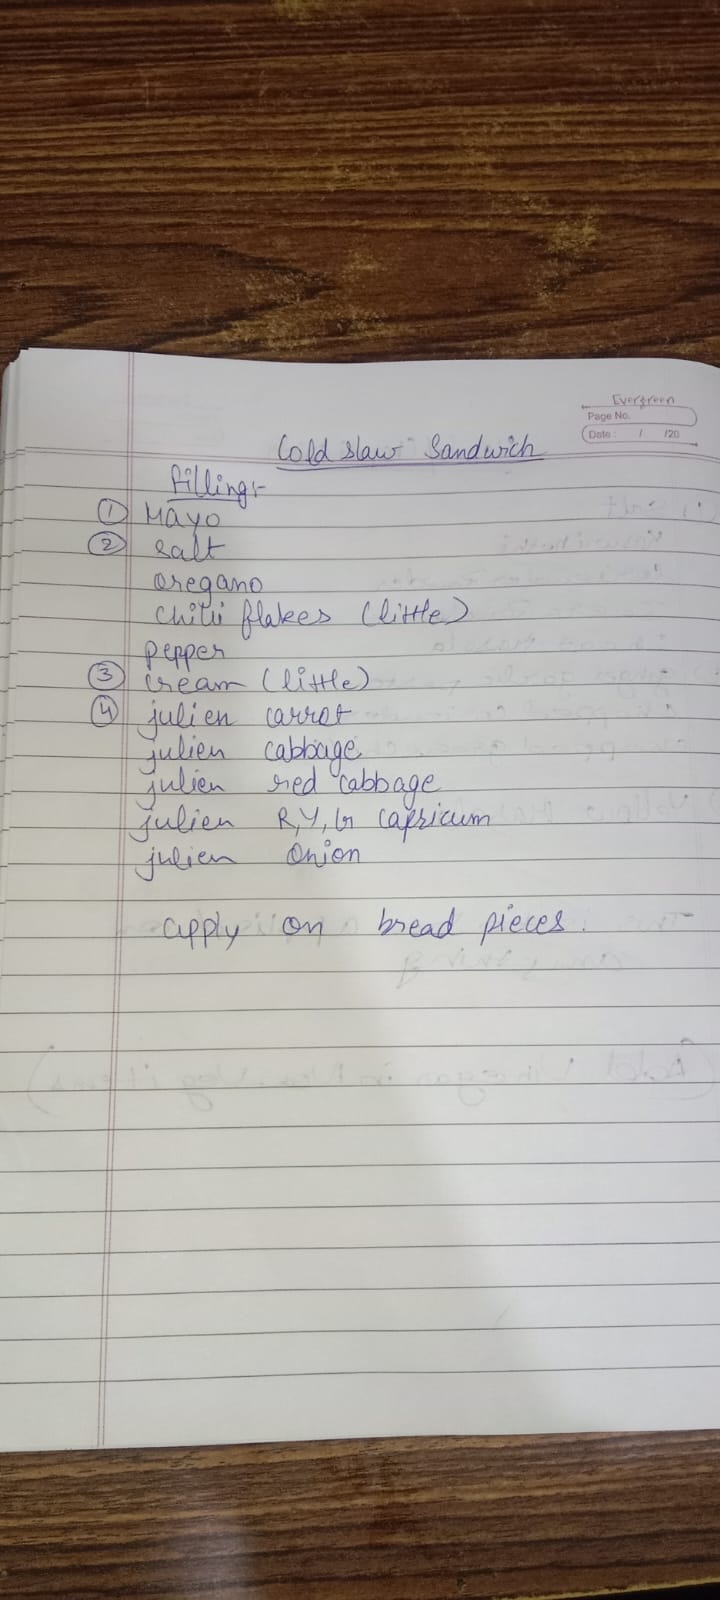 Evergreen
Page No.
Date : / /20
Cold slaw Sandwich
filling:-
① Mayo
② salt
oregano
chilli flakes (little)
pepper
③ cream (little)
④ julien carrot
julien cabbage
julien red cabbage
julien R, Y, G capricum
julien onion
apply on bread pieces.